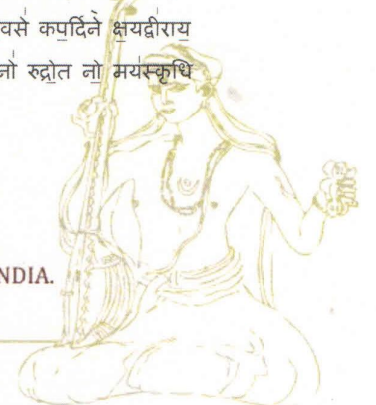 वसे॑ कप॒र्दिने᳚ क्ष॒यद्वी॑राय॒
नो॑ रुद्रो॒त नो॒ मय॑स्कृधि
NDIA.